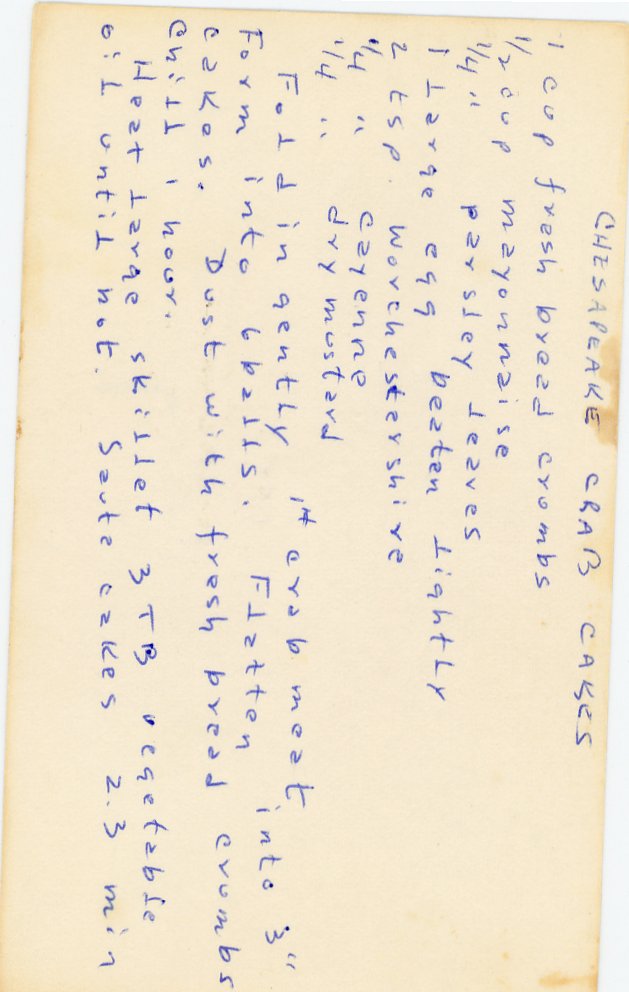 CHESAPEAKE CRAB CAKES
1 cup fresh bread crumbs
1/2 cup mayonnaise
1/4 " parsley leaves
1 large egg beaten lightly
2 tsp. Worchestershire
1/4 " cayenne
1/4 " dry mustard
Fold in gently 1# crab meat
Form into 6 balls. Flatten into 3"
cakes. Dust with fresh bread crumbs
chill 1 hour.
Heat large skillet 3 TB vegetable
oil until hot. Saute cakes 2.3 min